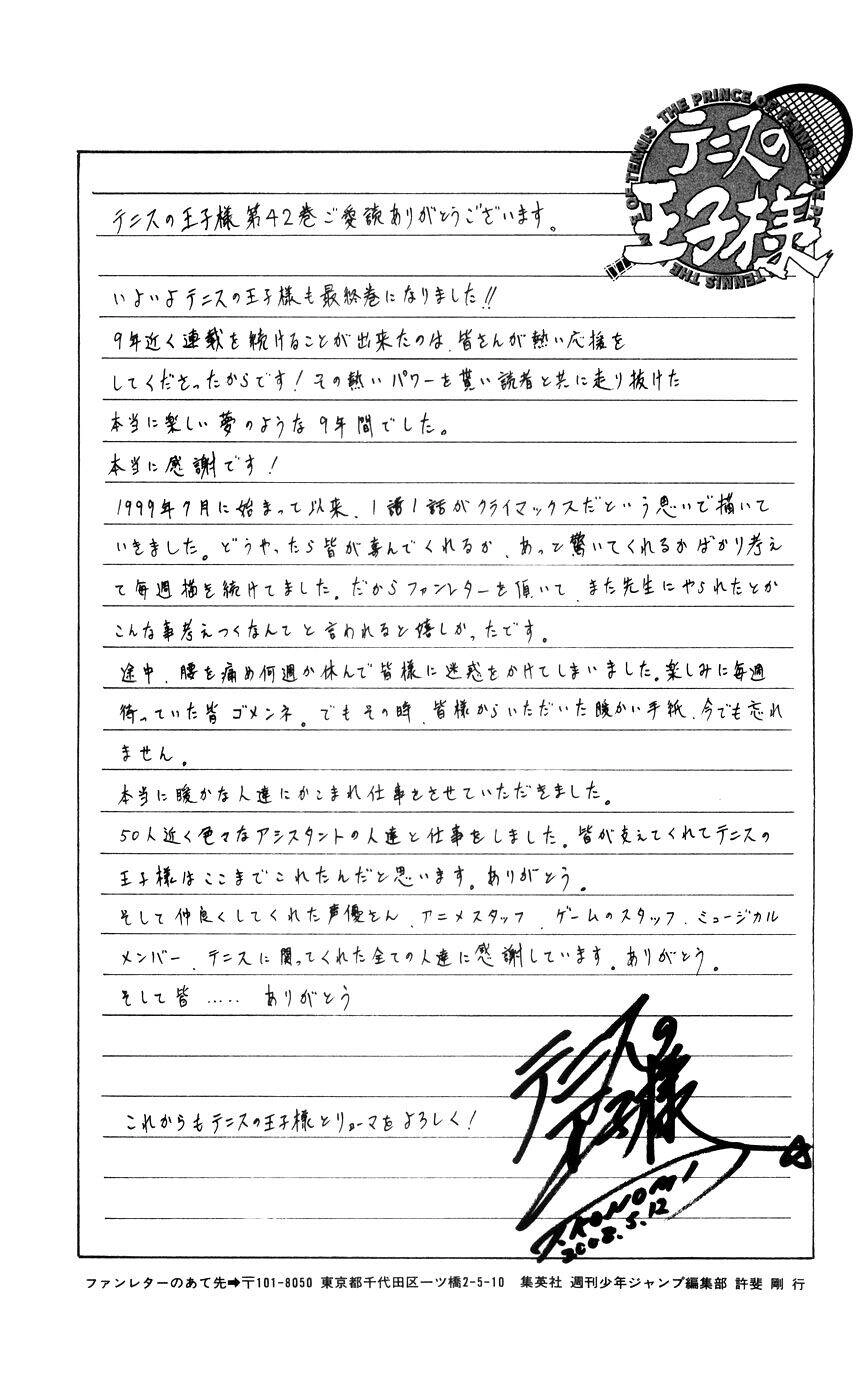 THE PRINCE OF TENNIS
テニスの
王子様
テニスの王子様第42巻ご愛読ありがとうございます。
いよいよテニスの王子様も最終巻になりました!!
9年近く連載を続けることが出来たのは、皆さんが熱い応援を
してくださったからです!その熱いパワーを貰い読者と共に走り抜けた
本当に楽しい夢のような9年間でした。
本当に感謝です!
1999年7月に始まって以来、1話1話がクライマックスだという思いで描いて
いきました。どうやったら皆が喜んでくれるか、あっと驚いてくれるかばかり考え
て毎週描き続けてました。だからファンレターを頂いて、また先生にやられたとか
こんな事考えつくなんてと言われると嬉しかったです。
途中、腰を痛め何週か休んで皆様に迷惑をかけてしまいました。楽しみに毎週
待っていた皆ゴメンネ。でもその時、皆様からいただいた暖かい手紙、今でも忘れ
ません。
本当に暖かな人達にかこまれ仕事をさせていただきました。
50人近く色々なアシスタントの人達と仕事をしました。皆が支えてくれてテニスの
王子様はここまでこれたんだと思います。ありがとう。
そして仲良くしてくれた声優さん、アニメスタッフ、ゲームのスタッフ、ミュージカル
メンバー、テニスに関ってくれた全ての人達に感謝しています。ありがとう。
そして皆..... ありがとう
これからもテニスの王子様とリョーマをよろしく!
テニスの
王子様
T.KONOMI
2008.5.12
ファンレターのあて先➡〒101-8050 東京都千代田区一ツ橋2-5-10 集英社 週刊少年ジャンプ編集部 許斐 剛 行